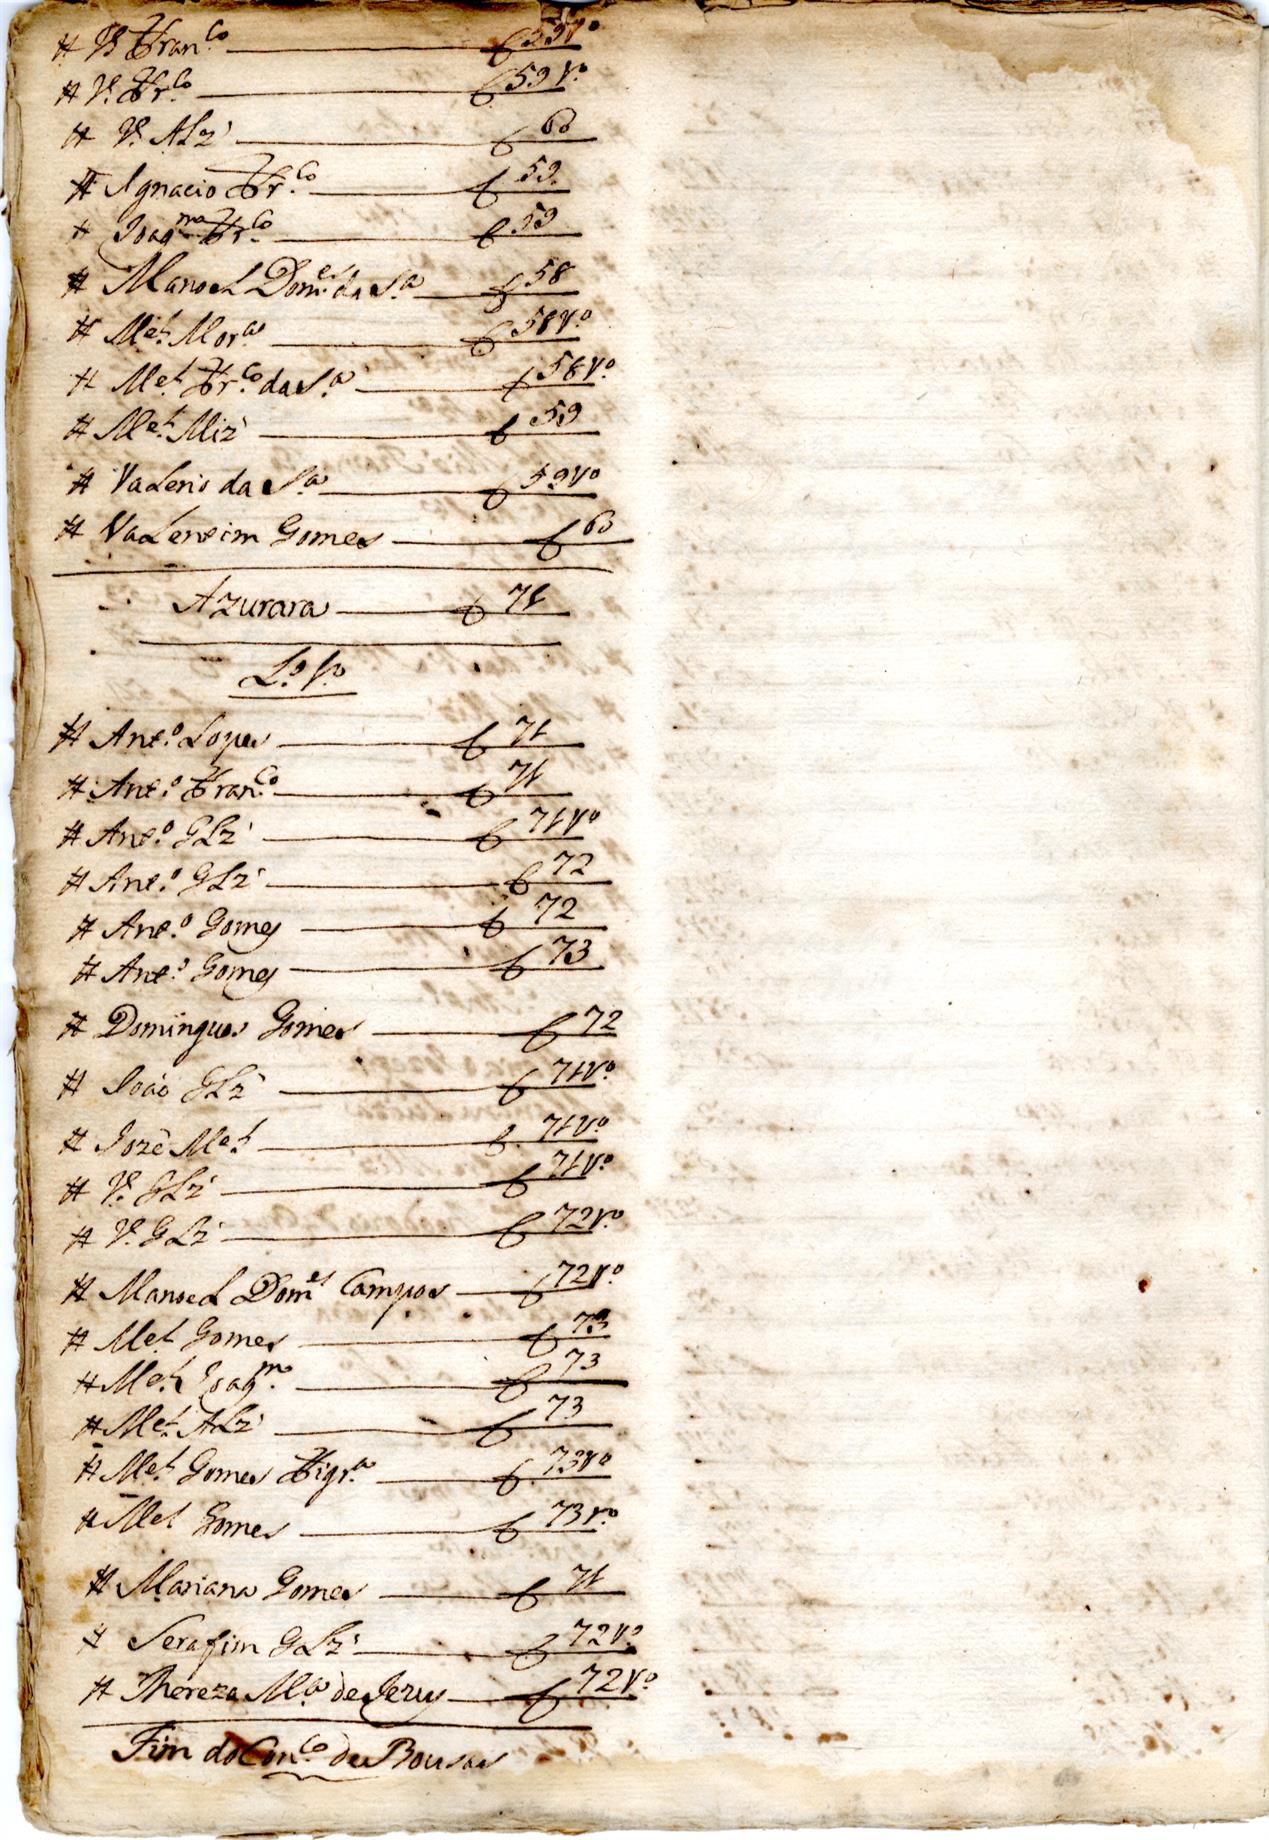 # V.ª Fran.co f 59 v.o
# V.ª Fr.co f 59 v.o
# V.ª Alz' f 60
# Ignacio Fr.co f 59.
# Joaq.na Fr.co f 59
# Manoel Dom.es da S.a f 58
# M.el Mor.a f 58 v.o
# M.el Fr.co da S.a f 58 v.o
# M.el Miz' f 59
# Valerio da S.a f 59 v.o
# Valentim Gomes f 60
Azurara f 71
L.o V.o
# Ant.o Lopes f 71
# Ant.o Fran.co f 71
# Ant.o Glz' f 71 v.o
# Ant.o Glz' f 72
# Ant.o Gomes f 72
# Ant.o Gomes f 73
# Domingues Gomes f 72
# João Glz' f 71 v.o
# Jozê M.el f. 71 v.o
# V.ª Glz' f 71 v.o
# V.ª Glz' f 72 v.o
# Manoel Dom.es Campos f 72 v.o
# M.el Gomes f 73
# M.el Joaq.m f 73
# M.el Alz' f 73
# M.el Gomes Figr.a f 73 v.o
# Mel Gomes f 73 v.o
# Mariana Gomes f 71
# Serafim Glz' f 72 v.o
# Thereza M.a de Jezus f 72 v.o
Fim do Con.co de Bousas